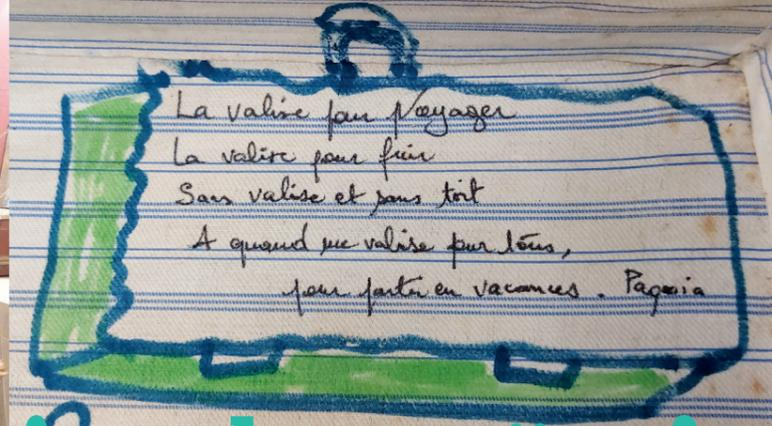 La valise pour Voyager
La valise pour fuir
Sans valise et sans toit
A quand une valise pour tous,
pour partir en vacances.